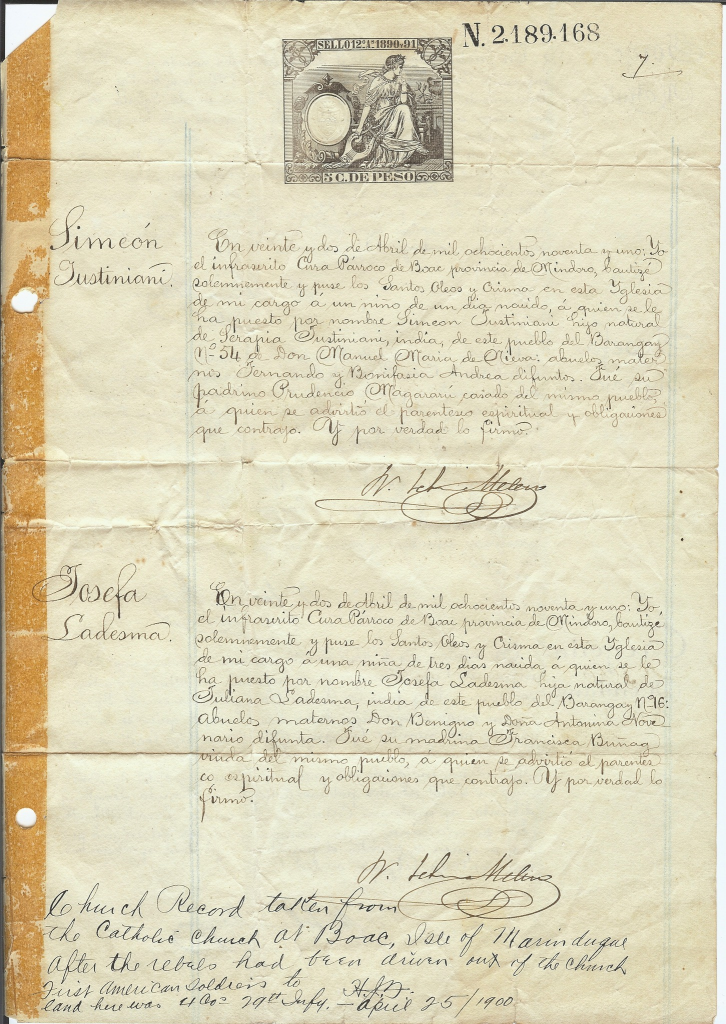 SELLO 12º Aº 1890 Y 91
N. 2.189.168
7.
5 C. DE PESO
Simeón
Justiniani.
En veinte y dos de Abril de mil ochocientos noventa y uno: Yo
el infrascrito Cura Párroco de Boac provincia de Mindoro, bautizé
solemnemente y puse los Santos Oleos y Crisma en esta Yglesia
de mi cargo a un niño de un dia nacido, á quien se le
ha puesto por nombre Simeon Justiniani hijo natural
de Serapia Justiniani, india, de este pueblo del Barangay
Nº 54 de Don Manuel Maria de Nieva: abuelos mater
nos Fernando y Bonifasia Andrea difuntos. Fué su
padrino Prudencio Magararú casado del mismo pueblo,
á quien se advirtió el parentesco espiritual y obligaciones
que contrajo. Y por verdad lo firmo.
Josefa
Ladesma.
En veinte y dos de Abril de mil ochocientos noventa y uno: Yo,
el infrascrito Cura Párroco de Boac provincia de Mindoro, bautizé
solemnemente y puse los Santos Oleos y Crisma en esta Yglesia
de mi cargo á una niña de tres dias nacida á quien se le
ha puesto por nombre Josefa Ladesma hija natural de
Juliana Ladesma, india de este pueblo del Barangay Nº 16:
abuelos maternos Don Benigno y Doña Antonina Nove
nario difunta. Fué su madrina Francisca Buñag
viuda del mismo pueblo, á quien se advirtió el parentes
co espiritual y obligaciones que contrajo. Y por verdad lo
firmo.
Church Record taken from
the Catholic church at Boac, Isle of Marinduque
after the rebels had been driven out of the church
First American soldiers to
land here was 4 Cos 29th Infy. — April 25/1900